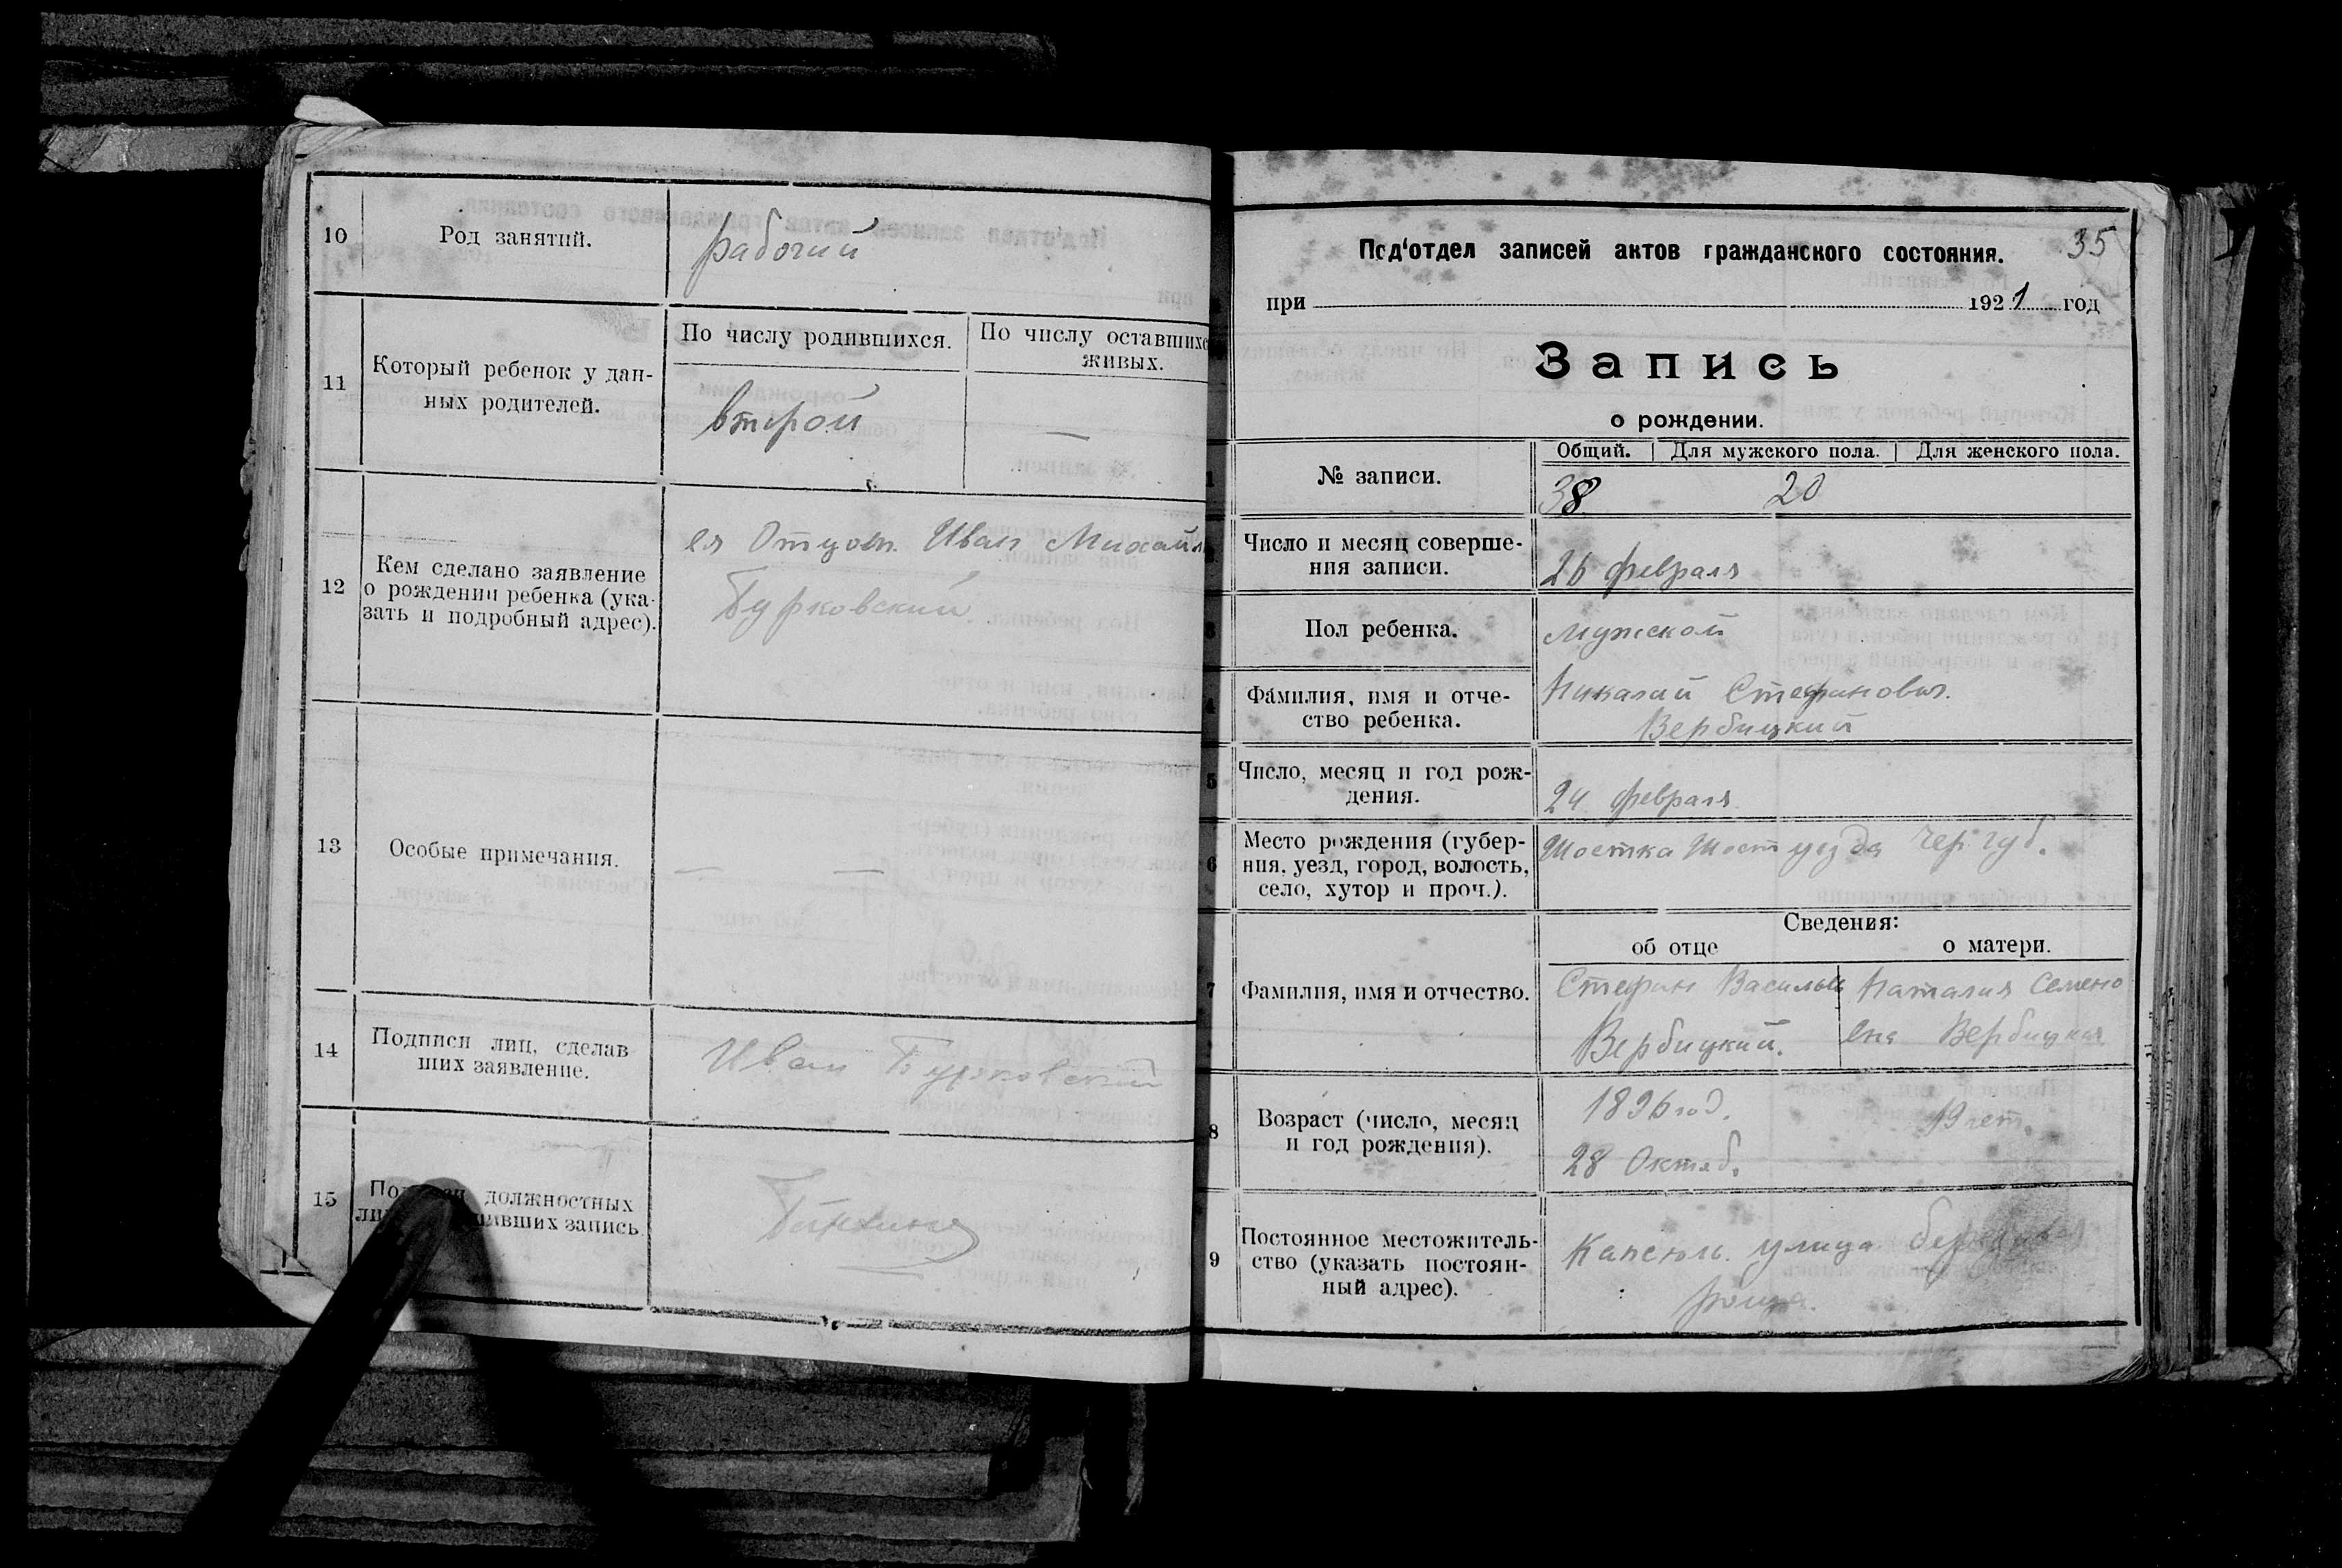 10
Род занятий.
рабочий
11
Который ребенок у дан-
ных родителей.
По числу родившихся.
По числу оставшихс
живых.
второй
—
12
Кем сделано заявление
о рождении ребенка (ука-
зать и подробный адрес).
ея Отцом. Иван Михайл
Бурковский
13
Особые примечания.
— —
14
Подписи лиц, сделав
ших заявление.
Иван Бурковский
15
должностных
запись
35
Под‘отдел записей актов гражданского состояния.
при 1921 год
Запись
о рождении.
1
№ записи.
Общий. Для мужского пола. Для женского пола.
38 20
Число и месяц соверше-
ния записи.
26 февраля
3
Пол ребенка.
Мужской
4
Фамилия, имя и отче-
ство ребенка.
Николай Стефанович.
Вербицкий
5
Число, месяц и год рож-
дения.
24 февраля
6
Место рождения (губер-
ния, уезд, город, волость,
село, хутор и проч.).
Шостка Шост уезда Чер. губ.
Сведения:
об отце
о матери.
7
Фамилия, имя и отчество.
Стефан Василье
Вербицкий.
Наталия Семено
вна Вербицкая
8
Возраст (число, месяц
и год рождения).
1896 год.
28 Октяб.
19 лет.
9
Постоянное местожитель-
ство (указать постоян-
ный адрес).
Капсюль. улица
роща.